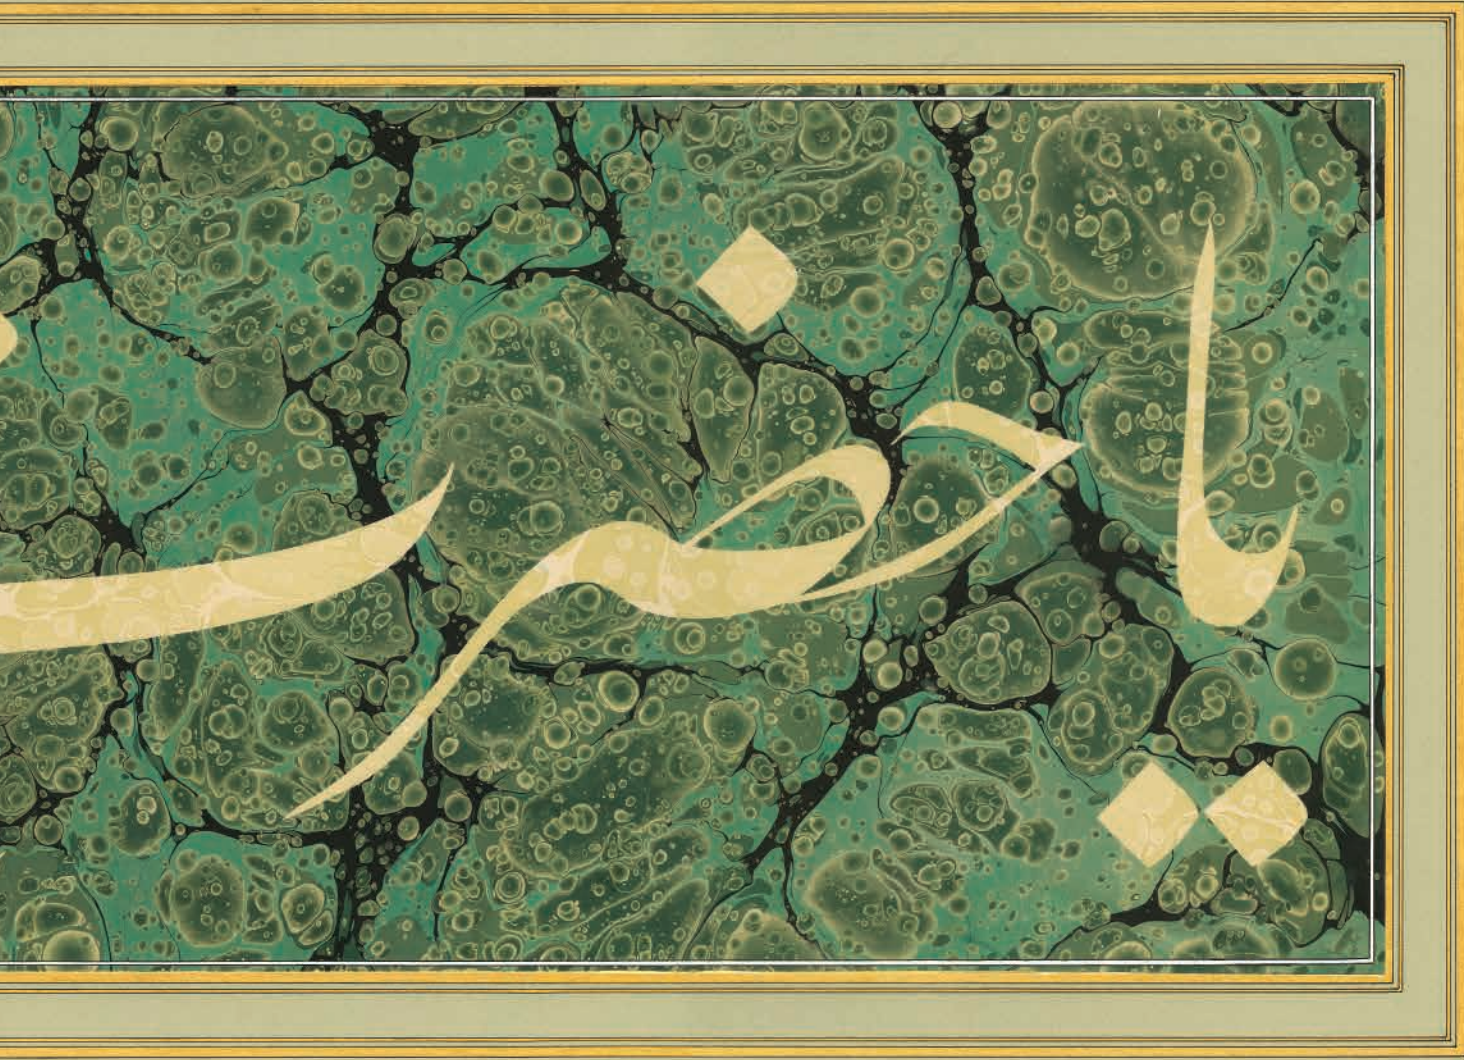 يا حضرت